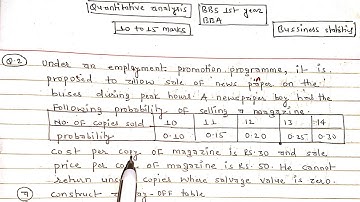 Quantitative analysis
BBS 1st year
BBA
10 to 15 marks
Bussiness statistics
Q.2 Under an employment promotion programme, it is
proposed to allow sale of news paper on the
buses during peak hours. A newspaper boy has the
following probability of selling a magazine.
No. of copies sold 10 11 12 13 14
probability 0.10 0.15 0.20 0.25 0.30
cost per copy of magazine is Rs. 30 and sale
price per copy of magazine is Rs. 50. He cannot
return unsold copies where salvage value is zero.
construct pay-OFF table